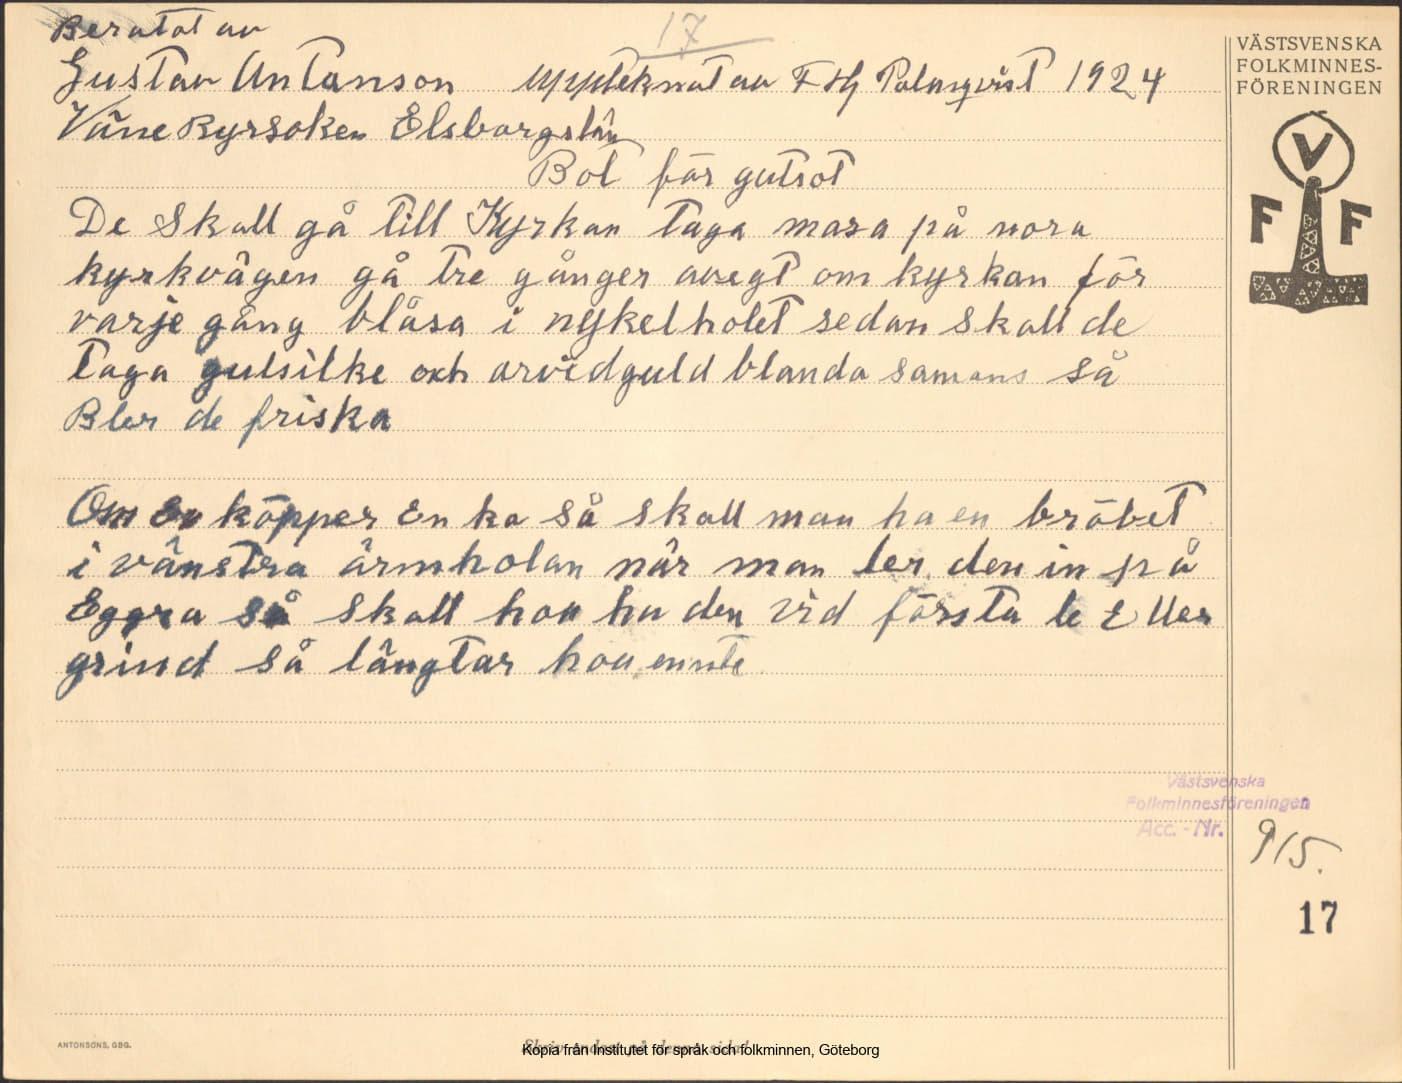 Beratat av
17
Gustav Antanson uppteknat av F Hj Palmqvist 1924
Väne Ryrsoken Elsborgslän
Bot får gutsot
De Skall gå till Kyrkan taga mosa på nora
kyrkvägen gå tre gånger avegt om kyrkan för
varje gång blåsa i nykelholet sedan skall de
taga gulsilke och arvedguld blanda samans så
Bler de friska
Om En köpper En ko så skall man ha en bröbet
i vänstra ärmholan når man ler den in på
Eggra så skall hon ha den vid första le Eller
grind så långtar hon ennte
VÄSTSVENSKA
FOLKMINNES-
FÖRENINGEN
V
F F
Västsvenska
Folkminnesföreningen
Acc. - Nr. 915.
17
ANTONSONS, GBG.
Skriv endast på denna sida!
Kopia från Institutet för språk och folkminnen, Göteborg